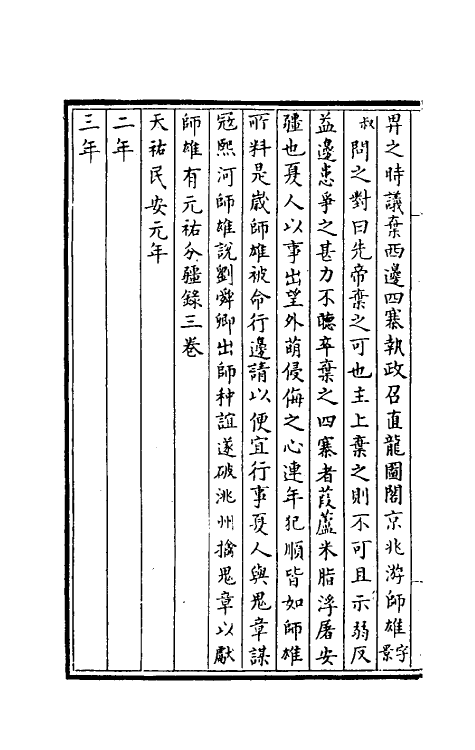 畀之時議棄西邊四寨執政召直龍圖閣京兆游師雄字景
叔問之對曰先帝棄之可也主上棄之則不可且示弱反
益邊患爭之甚力不聽卒棄之四寨者葭蘆米脂浮屠安
疆也夏人以事出望外萌侵侮之心連年犯順皆如師雄
所料是歲師雄被命行邊請以便宜行事夏人與鬼章謀
冦熙河師雄說劉舜卿出師种誼遂破洮州擒鬼章以獻
師雄有元祐分疆錄三卷
天祐民安元年
二年
三年